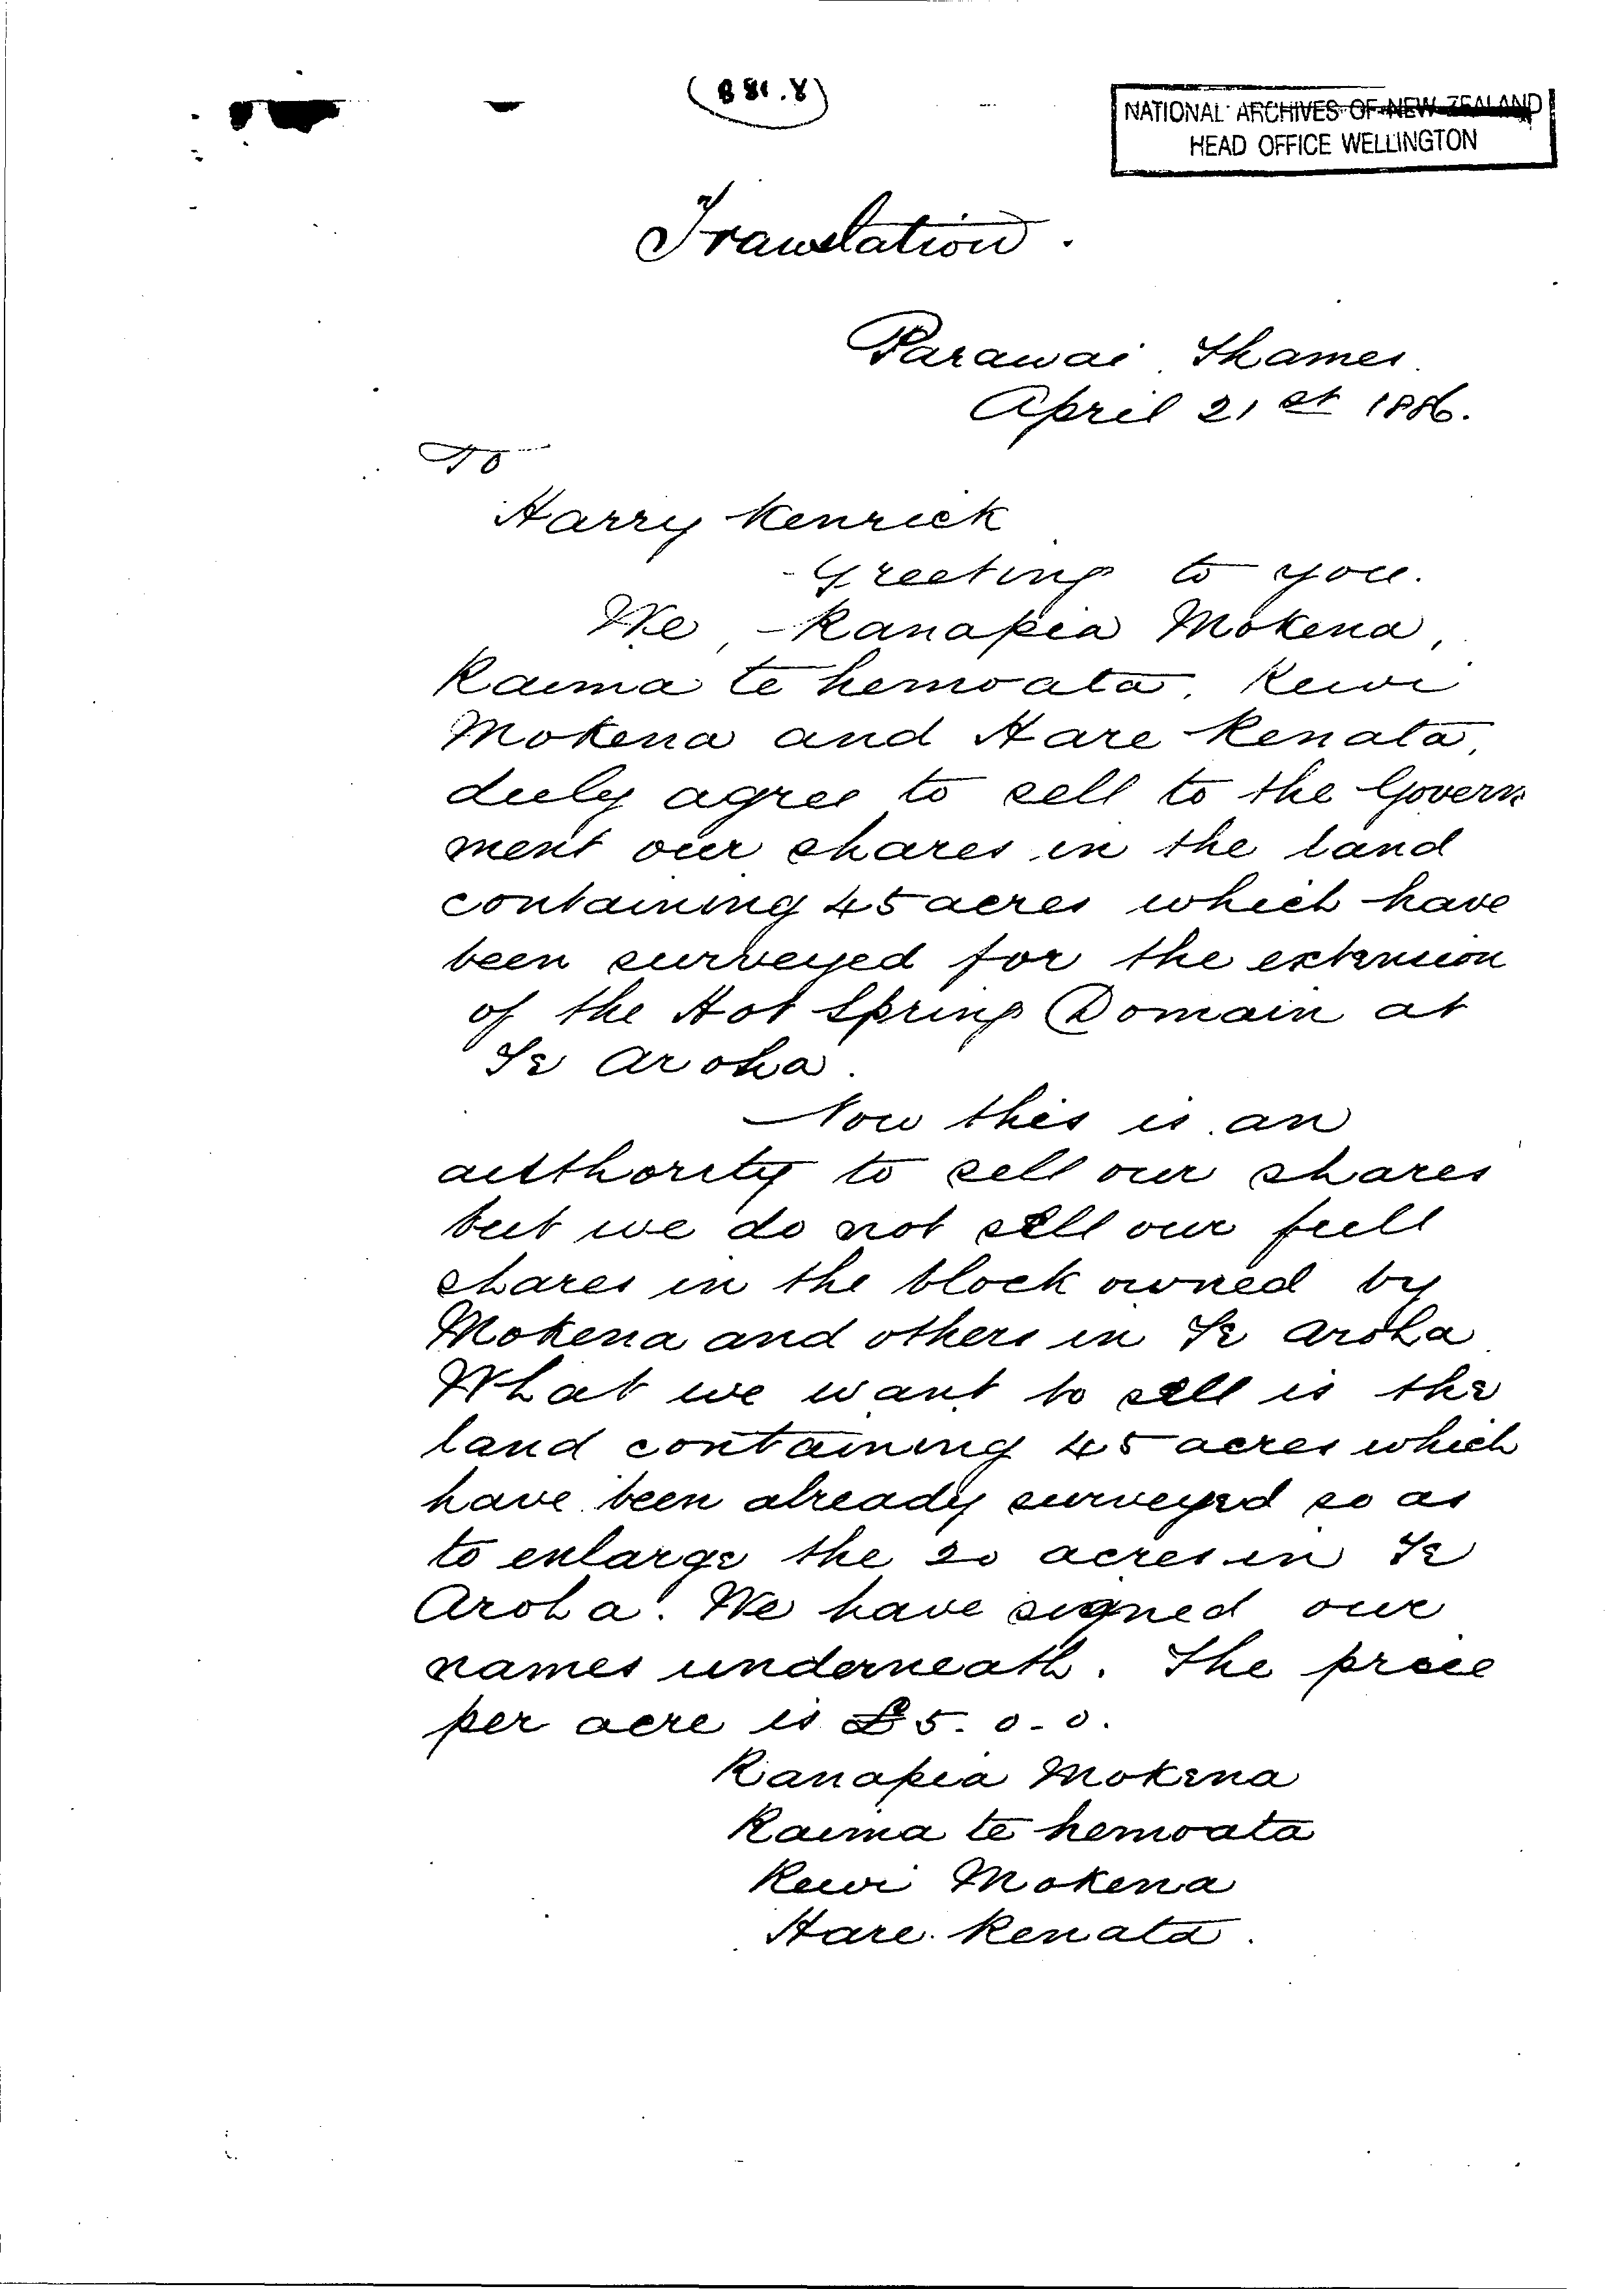 (B 81.8)
NATIONAL ARCHIVES OF NEW ZEALAND
HEAD OFFICE WELLINGTON
Translation.
Parawai Thames.
April 21st 1886.
To
Harry Kenrick
Greeting to you.
We, Ranapia Mokena,
Raima te hemoata, Rewi
Mokena and Hare Renata,
duly agree to sell to the Govern
ment our shares in the land
containing 45 acres which have
been surveyed for the extension
of the Hot Spring Domain at
Te Aroha.
Now this is an
authority to sell our shares
but we do not sell our full
shares in the block owned by
Mokena and others in Te Aroha.
What we want to sell is the
land containing 45 acres which
have been already surveyed so as
to enlarge the 20 acres in Te
Aroha. We have signed our
names underneath. The price
per acre is £5.0-0.
Ranapia Mokena
Raima te hemoata
Rewi Mokena
Hare Renata.